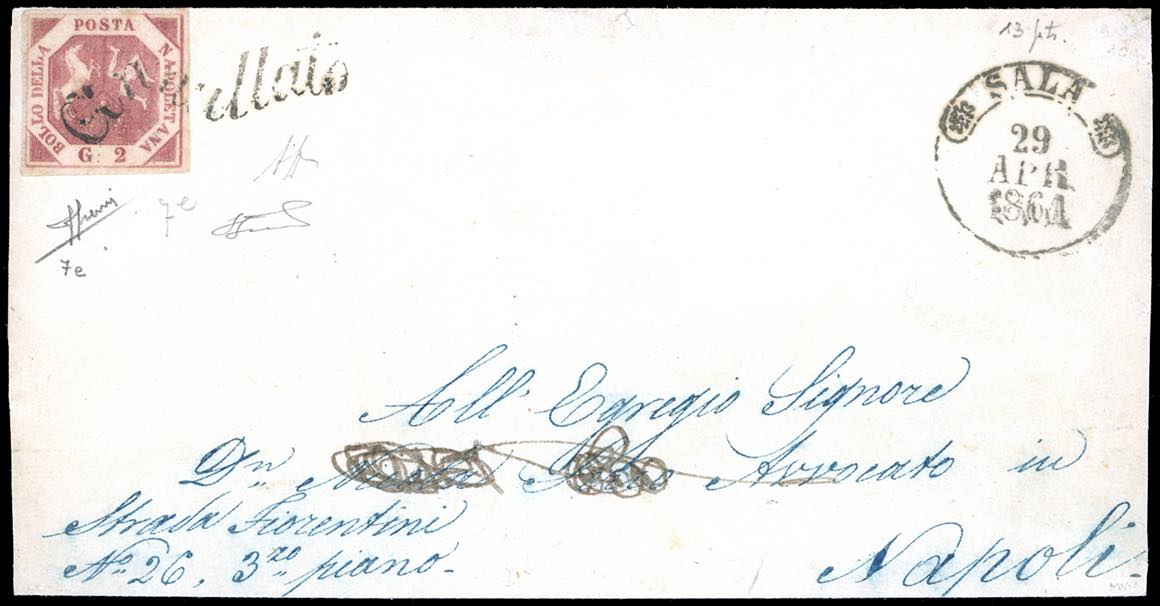 POSTA
BOLLO DELLA
NAPOLETANA
G. 2
Annullato
13 pts.
SALA
29
APR
1861
7e
7e
All' Egregio Signore
Dn Avvocato in
Strada Fiorentini
No 26, 3zo piano-
Napoli.